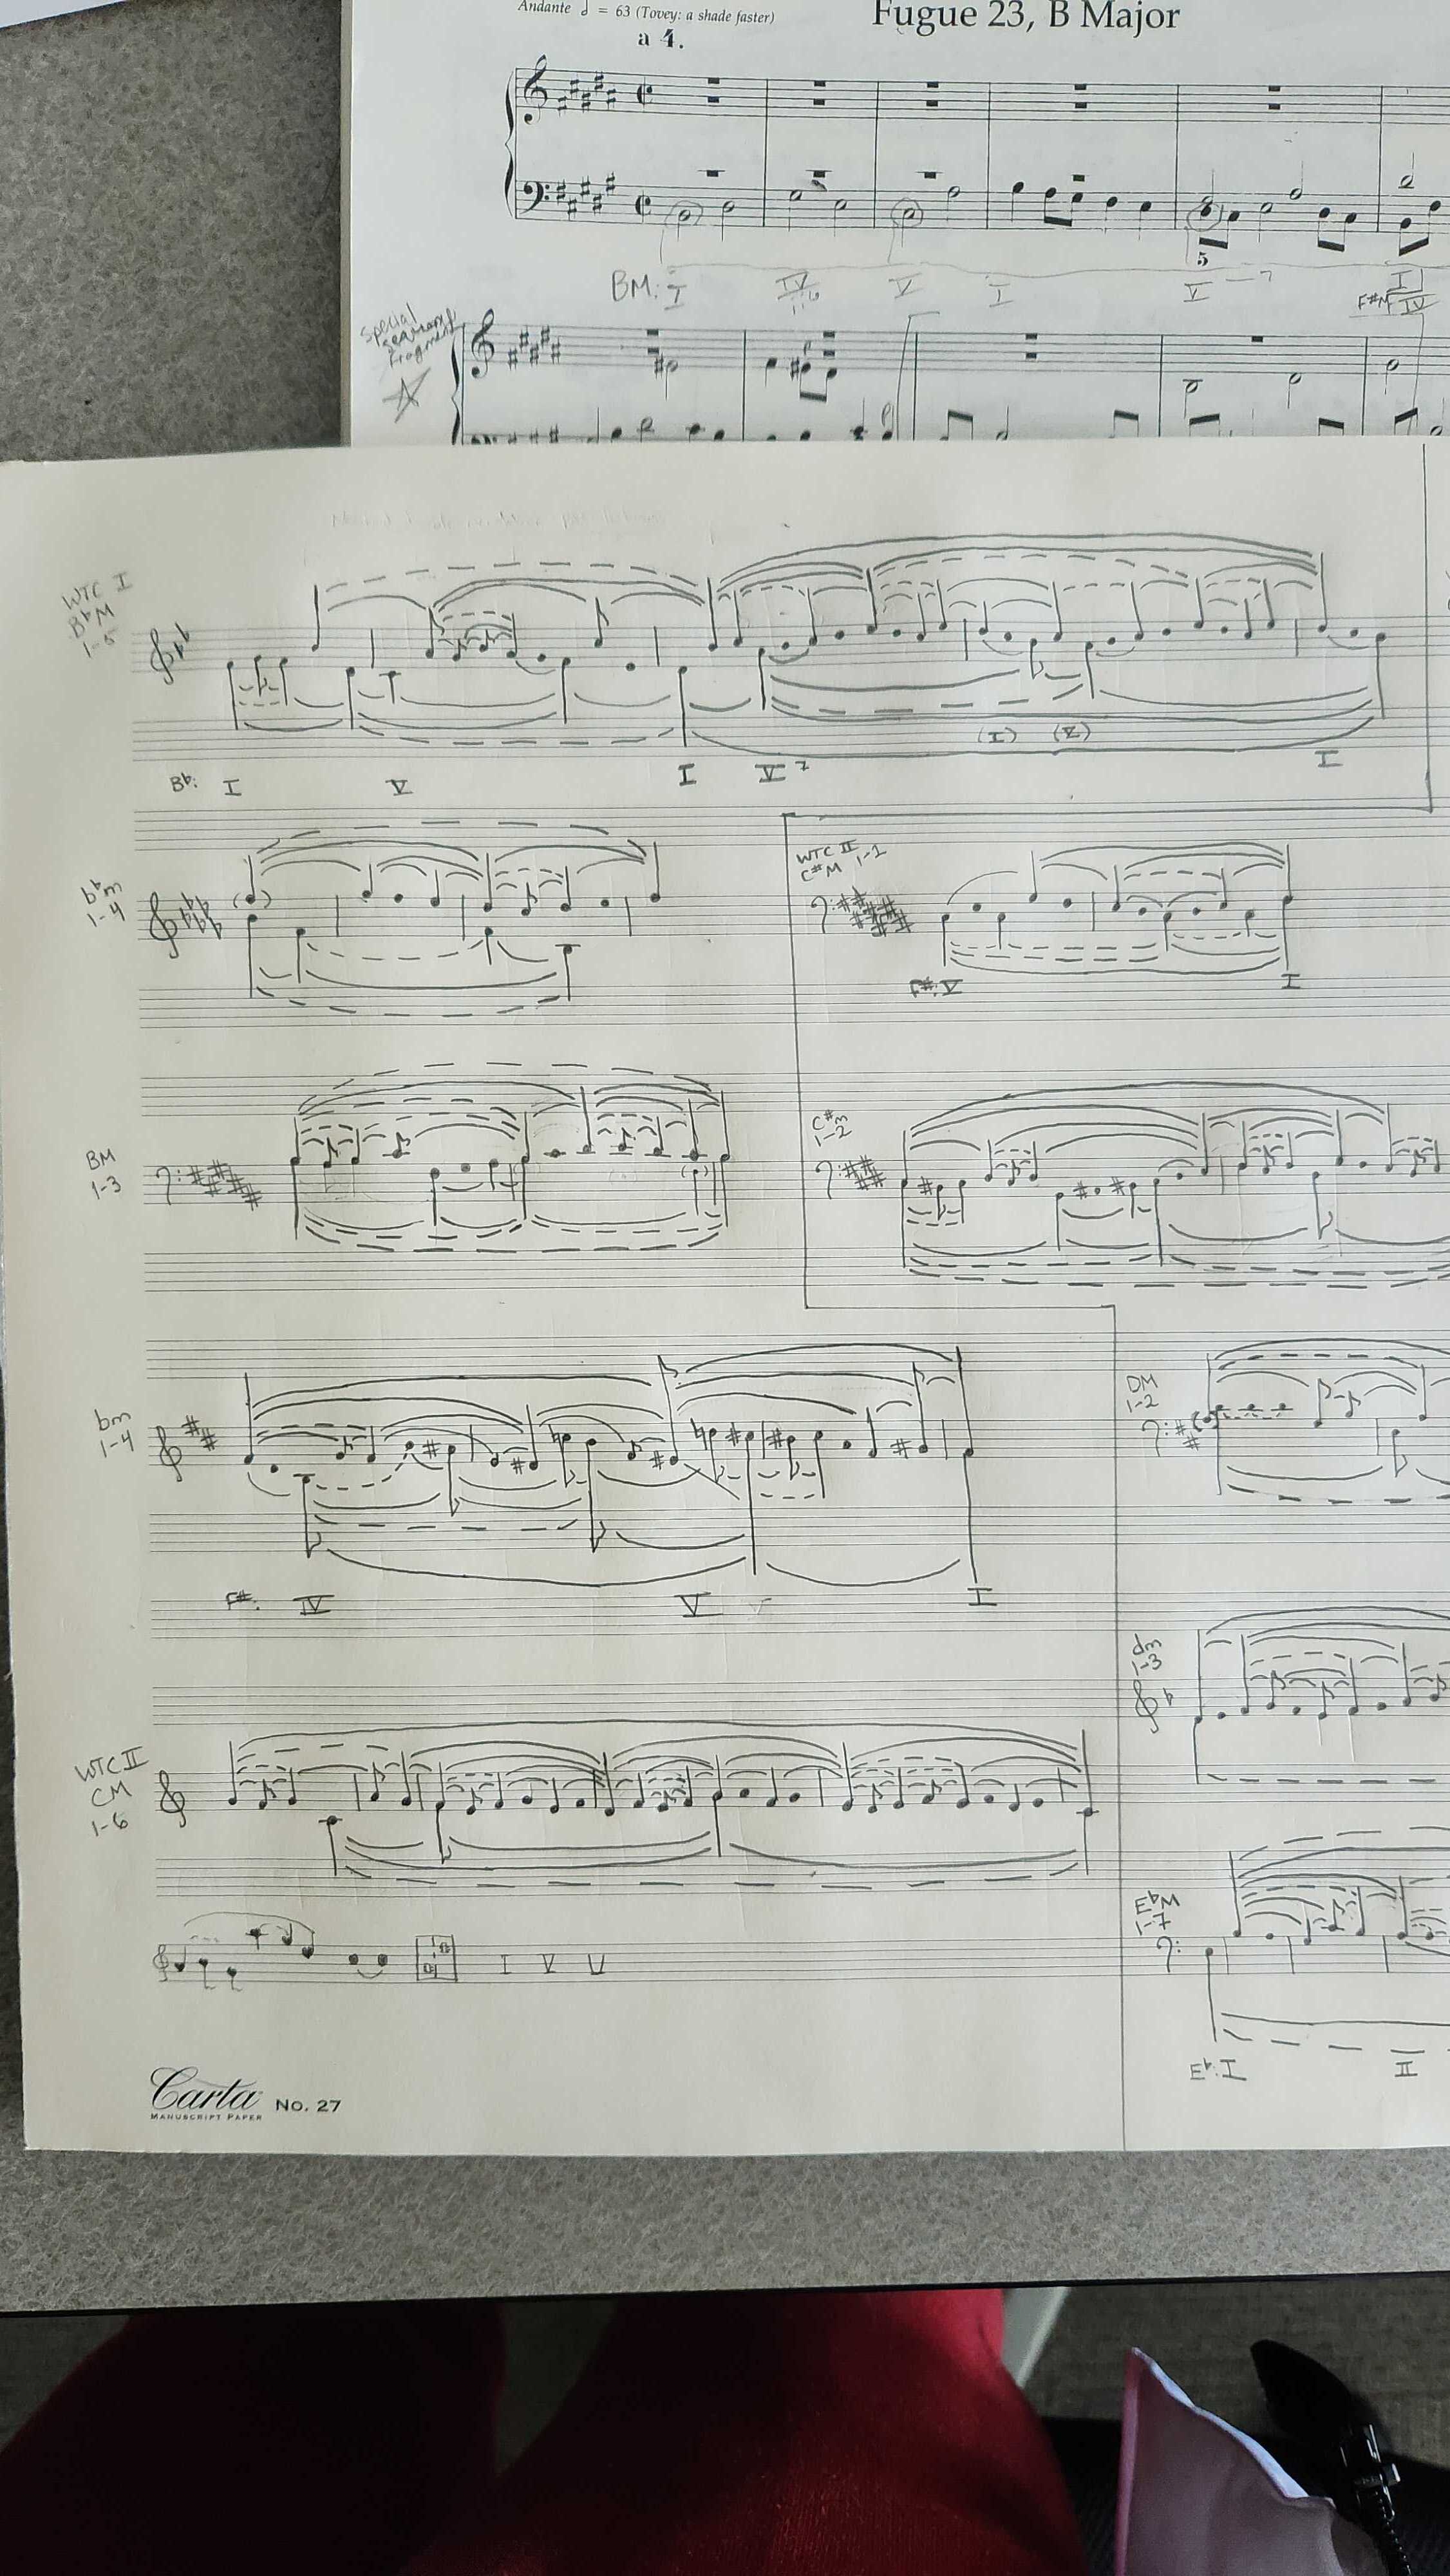 Andante = 63 (Tovey: a shade faster)
Fugue 23, B Major
a 4.
5
BM: I IV V I V — 7 I
F#M IV
special
fragment
WTC I
BbM
1-5
(I) (V)
Bb: I V I V7 I
bbm
1-4
WTC II
C#M 1-2
F#: V I
BM
1-3
C#m
1-2
bm
1-4
DM
1-2
F#: IV V V I
dm
1-3
WTC II
CM
1-6
EbM
1-7
I V V
Eb: I II
Carta No. 27
MANUSCRIPT PAPER